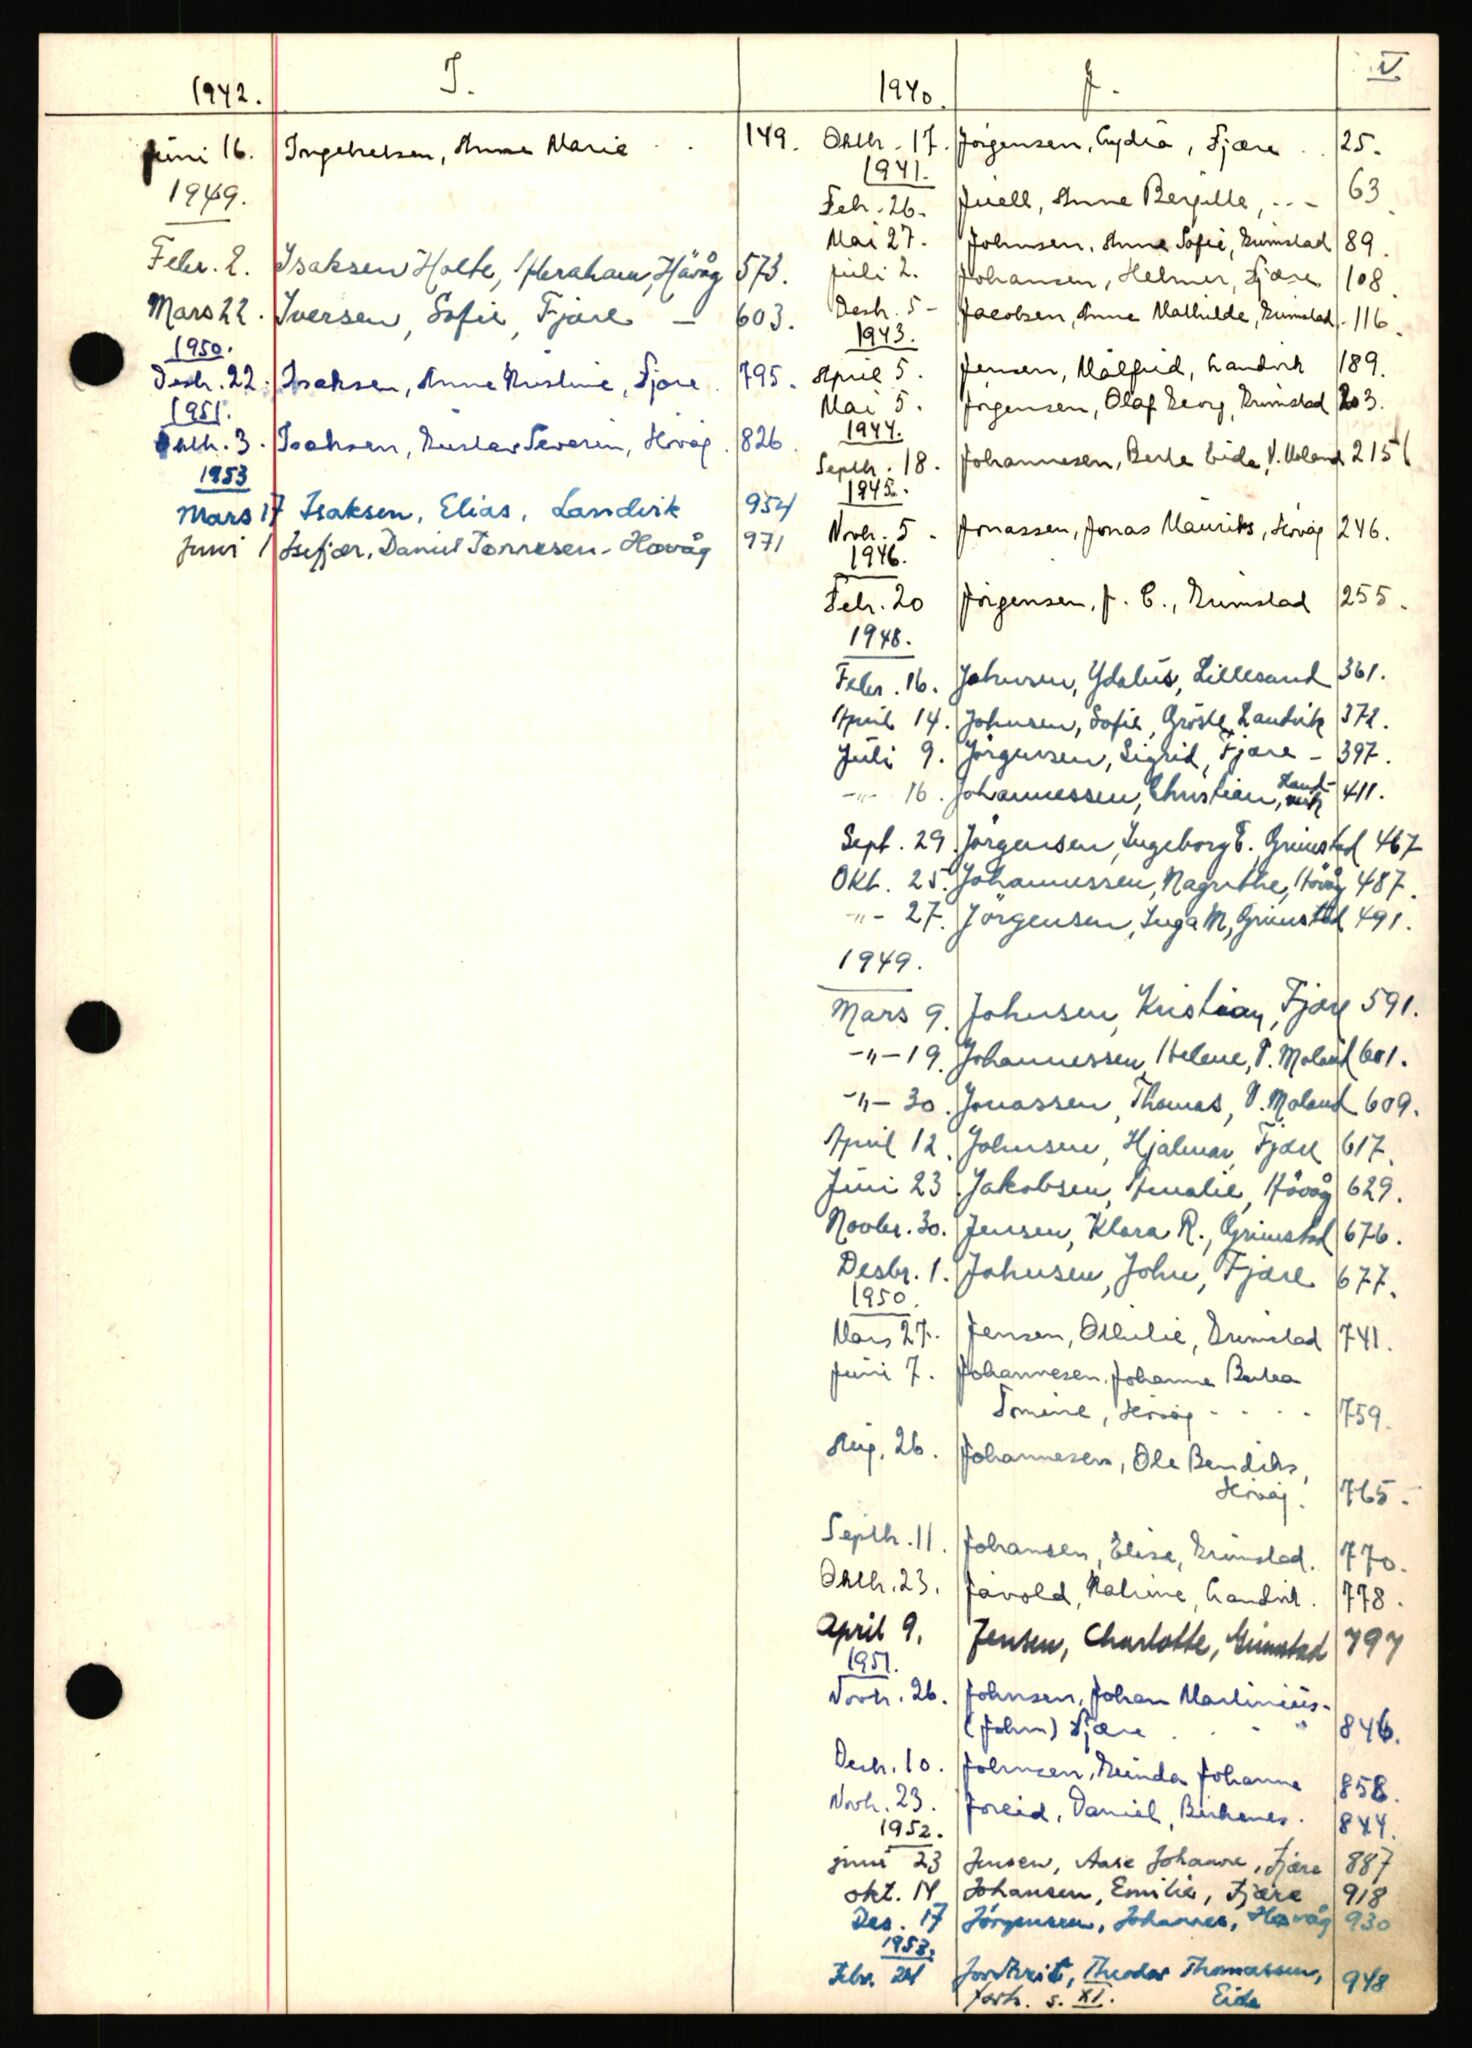 1942. I.
Juni 16. Ingebretsen, Anne Marie . . 149.
1949.
Febr. 2. Isaksen Holte, Abraham, Hövåg 573.
Mars 22. Iversen, Sofie, Fjære — 603.
1950.
Desbr. 22. Isaksen, Anne Kristine, Fjære. 795.
1951.
Oktb. 3. Isaksen, Gustav Severin, Hövåg. 826.
1953
Mars 17 Isaksen, Elias, Landvik 954
Juni 1 Isefjær, Daniel Tønnesen - Høvåg 971
1940. J. IV
Oktb. 17. Jörgensen, Lydia, Fjære . . 25.
1941.
Feb. 26. Juell, Anne Bergitte, . . - 63.
Mai 27. Johnsen, Anna Sofie, Grimstad 89.
Juli 2. Johansen, Helmer, Fjære 108.
Desb. 5 - Jacobsen, Anne Mathilde, Grimstad. 116.
1943.
April 5. Jensen, Målfrid, Landvik 189.
Mai 5. Jörgensen, Olaf Georg, Grimstad 203.
1944.
Septb. 18. Johannesen, Berte Eide, V. Moland 215
1945.
Novb. 5. Jonassen, Jonas Maurits, Hövåg 246.
1946.
Feb. 20 Jörgensen, J. C., Grimstad 255.
1948.
Febr. 16. Johnsen, Ydalus, Lillesand 361.
April 14. Johnsen, Sofie, Landvik 372.
Juli 9. Jörgensen, Sigrid, Fjære - 397.
-"- 16. Johannessen, Christian, Landvik 411.
Sept. 29. Jörgensen, Ingeborg E., Grimstad 467
Okt. 25. Johannessen, Magnthe, Hövåg 487.
-"- 27. Jörgensen, Inga M, Grimstad 491.
1949.
Mars 9. Johnsen, Kristian, Fjære 591.
-"- 19. Johannessen, Helene, V. Moland 601.
-"- 30. Jonassen, Thomas, V. Moland 609.
April 12. Johnsen, Hjalmar, Fjære 617.
Juni 23. Jakobsen, Amalie, Hövåg 629.
Novbr. 30. Jensen, Klara R., Grimstad 676.
Desbr. 1. Johnsen, John, Fjære 677.
1950.
Mars 27. Jensen, Othilie, Grimstad 741.
Juni 7. Johannesen, Johanne Bertea
Tomine, Hövåg - . . . 759.
Aug. 26. Johannesen, Ole Bendiks,
Hövåg. 765.
Septb. 11. Johansen, Elise, Grimstad. 770.
Oktb. 23. Jåvold, Katrine, Landvik. 778.
April 9. Jensen, Charlotte, Grimstad 797
1951.
Novb. 26. Johnsen, Johan Martinius-
(John) Fjære . . - " 846.
Desb. 10. Johnsen, Gunda Johanne 858.
Novb. 23. Joreid, Daniel, Birkenes. 844.
1952.
Juni 23 Jensen, Aase Johanne, Fjære 887
Okt. 14 Johansen, Emilie, Fjære 918
Des. 17 Jörgensen, Johannes, Høvåg 930
1953.
Febr. 24 Jortveit, Theodor Thomassen, 948
forts. s. XI. Eide